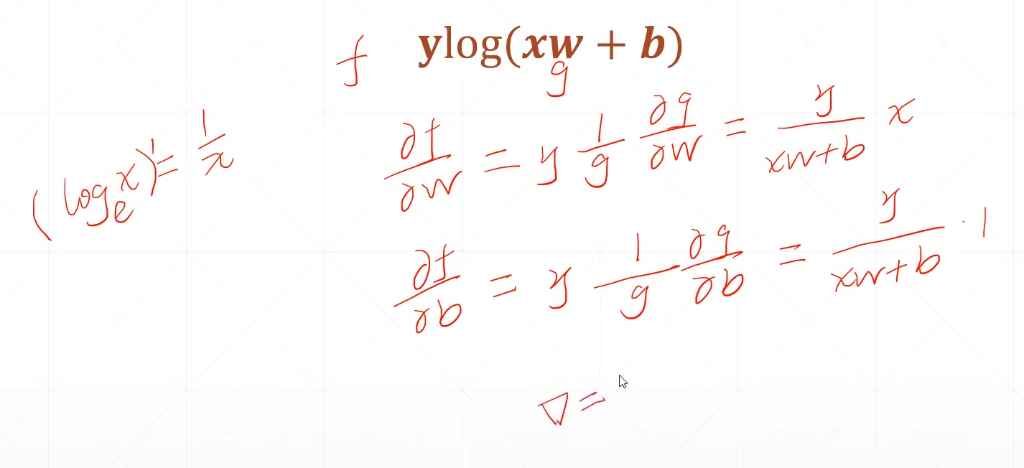 f ylog(xw + b)
g
(log_e x)' = 1/x
∂f/∂w = y 1/g ∂g/∂w = y/(xw+b) x
∂f/∂b = y 1/g ∂g/∂b = y/(xw+b) · 1
∇ =